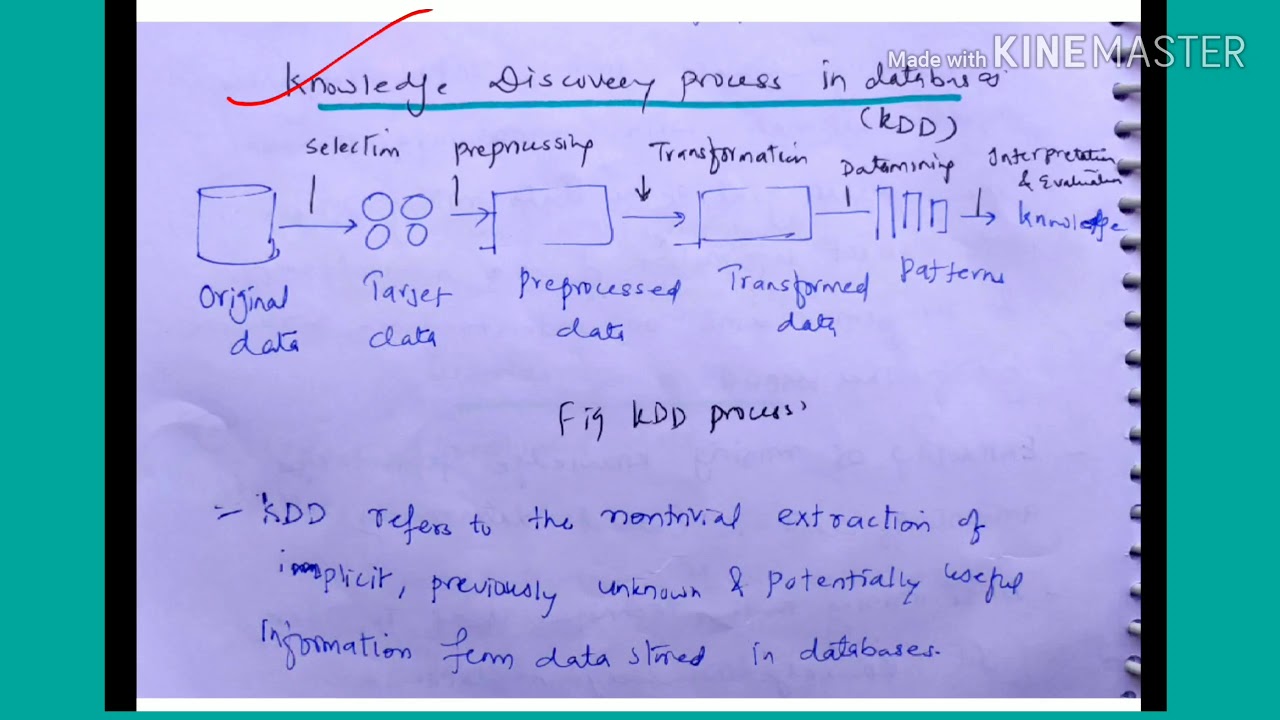 Made with KINEMASTER
Knowledge Discovery process in databases
(KDD)
selection preprocessing Transformation Datamining Interpretation
& Evaluation
Knowledge
Original Target Preprocessed Transformed Patterns
data data data data
Fig KDD process
- KDD refers to the nontrivial extraction of
implicit, previously unknown & potentially useful
Information from data stored in databases.